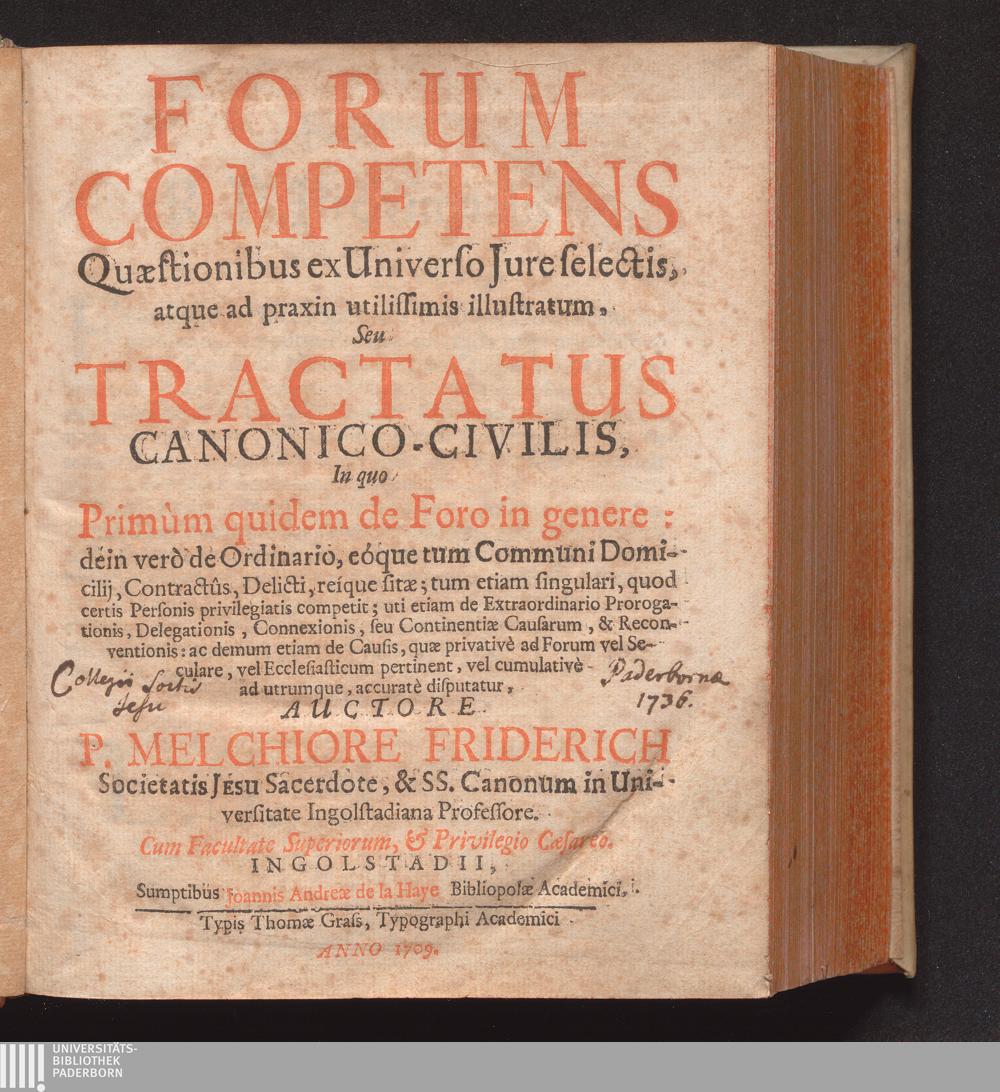 FORUM
COMPETENS
Quæſtionibus ex Univerſo Jure ſelectis,
atque ad praxin utiliſſimis illuſtratum,
Seu
TRACTATUS
CANONICO-CIVILIS,
In quo
Primùm quidem de Foro in genere :
déin verò de Ordinario, eóque tum Communi Domi-
cilij, Contractûs, Delicti, reíque ſitæ; tum etiam ſingulari, quod
certis Perſonis privilegiatis competit; uti etiam de Extraordinario Proroga-
tionis, Delegationis, Connexionis, ſeu Continentiæ Cauſarum, & Recon-
ventionis: ac demum etiam de Cauſis, quæ privativè ad Forum vel Se-
culare, vel Eccleſiaſticum pertinent, vel cumulativè
ad utrumque, accuratè diſputatur,
Collegii Soctis
Jesu
Paderbornæ
1736.
AUCTORE
P. MELCHIORE FRIDERICH
Societatis JEsu Sacerdote, & SS. Canonum in Uni-
verſitate Ingolſtadiana Profeſſore.
Cum Facultate Superiorum, & Privilegio Cæſareo.
INGOLSTADII,
Sumptibus Joannis Andreæ de la Haye Bibliopolæ Academici,
Typis Thomæ Graſs, Typographi Academici
ANNO 1709.
UNIVERSITÄTS-
BIBLIOTHEK
PADERBORN